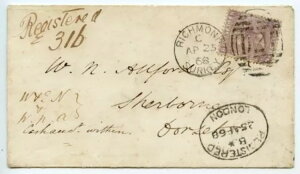 Registered
316
RICHMOND
C
AP 25
68
SURREY
W. N. Allford Esq
Sherborne
Dorset
W & N
W. N. A
within
REGISTERED
25 AP 68
LONDON